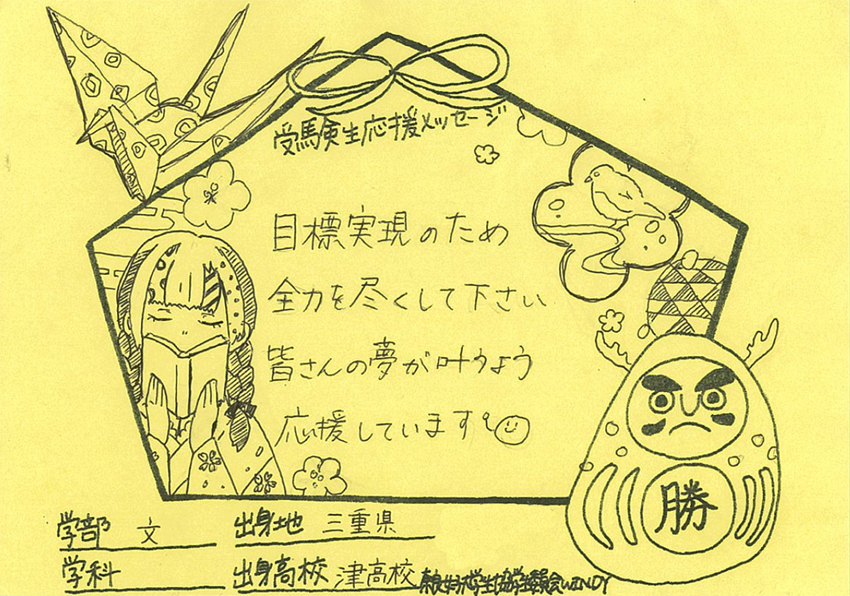 受験生応援メッセージ
目標実現のため
全力を尽くして下さい
皆さんの夢が叶うよう
応援しています
勝
学部 文 出身地 三重県
学科 出身高校 津高校 WINDY